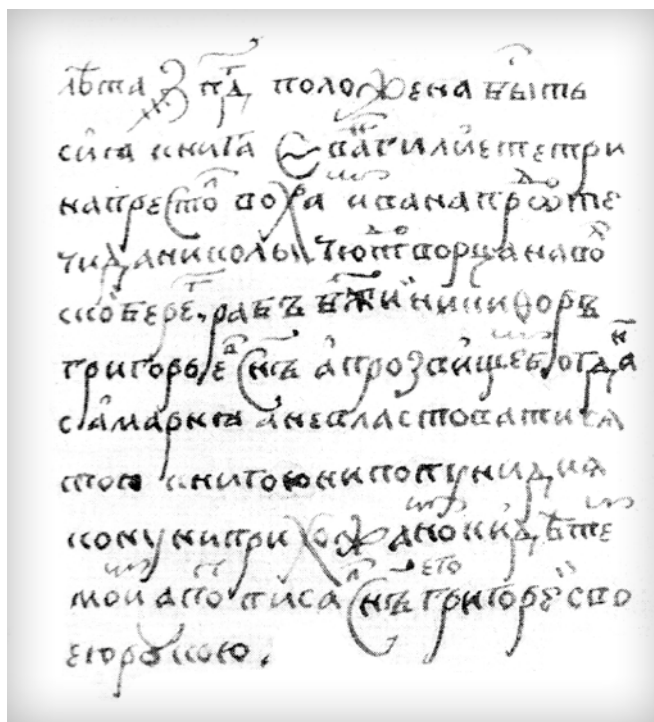 лѣта ҂зп҃д г положена бы́ть
сиꙗ книга Єва́нгилие тетри
на престо́л во хра́м ивана прѡ́дте
чи да николы чюдотворца на во́л
ско́ бере́г. рабъ бж҃ии никиѳоръ
григорьев сн҃ъ а прозвище богда́н
самарин а не власт овати сꙗ
тою книгою ни попу ни диꙗ
кону ни прихожано ни дѣте
мои а по писал сн҃ъ его григоре сво
ею рꙋкою.